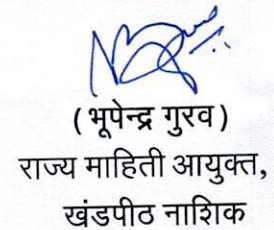 ( भूपेन्द्र गुरव )
राज्य माहिती आयुक्त,
खंडपीठ नाशिक